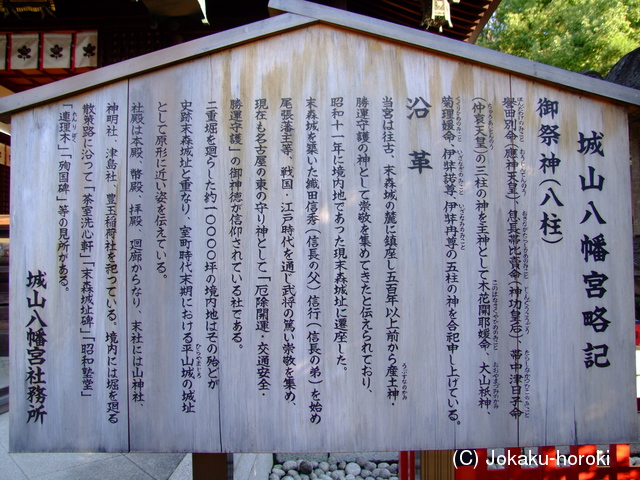 城山八幡宮略記
御祭神(八柱)
誉田別命(應神天皇)、息長帯比売命(神功皇后)、帯中津日子命
(仲哀天皇)の三柱の神を主神として木花開耶媛命、大山祇神、
菊理媛命、伊弉諾尊、伊弉冉尊の五柱の神を合祀申し上げている。
沿革
当宮は往古、末森城の麓に鎮座し五百年以上前から産土神・
勝運守護の神として崇敬を集めてきたと伝えられており、
昭和十一年に境内地であった現末森城址に遷座した。
末森城を築いた織田信秀(信長の父)信行(信長の弟)を始め
尾張藩士等、戦国、江戸時代を通じ武将の篤い崇敬を集め、
現在も名古屋の東の守り神として「厄除開運・交通安全・
勝運守護」の御神徳が信仰されている社である。
二重堀を廻らした約一〇〇〇〇坪の境内地はその殆どが
史跡末森城址と重なり、室町時代末期における平山城の城址
として原形に近い姿を伝えている。
社殿は本殿、幣殿、拝殿、廻廊からなり、末社には山神社、
神明社、津島社、豊玉稲荷社を祀っている。境内には堀を廻る
散策路に沿って「茶室洗心軒」「末森城址碑」「昭和塾堂」
「連理木」「殉国碑」等の見所がある。
城山八幡宮社務所
(C) Jokaku-horoki